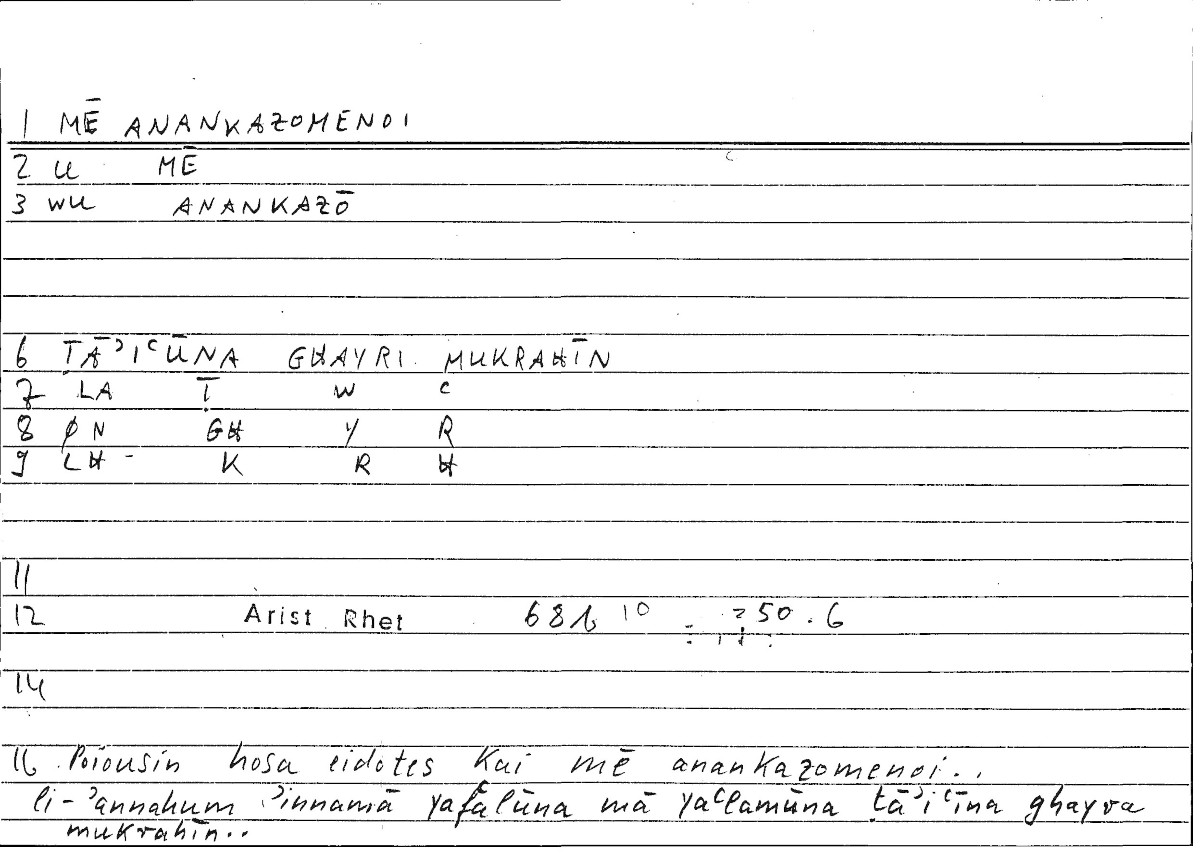 1 MĒ ANANKAZOMENOI
2 U MĒ
3 WU ANANKAZŌ
6 ṬĀʾIʿŪNA GHAYRI MUKRAHĪN
7 LA Ṭ W ʿ
8 ØN GH Y R
9 LH - K R H
11
12 Arist Rhet 68b 10 = 50.6
14
16 Poiousin hosa eidotes kai mē anankazomenoi..
li-ʾannahum ʾinnamā yafʿalūna mā yaʿlamūna ṭāʾiʿīna ghayra
mukrahīn..